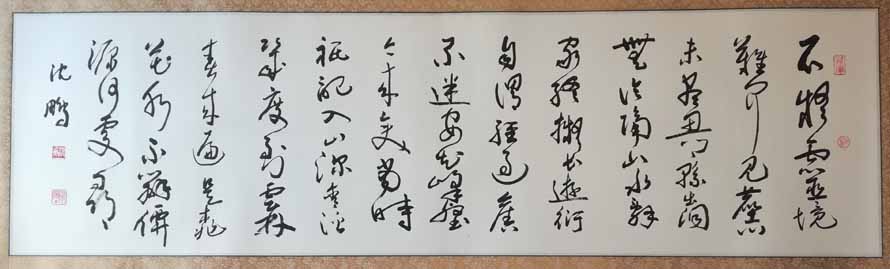 不疑靈境
難聞見塵心
未盡思鄉縣出洞
無論隔山水辭
家終擬長遊衍
自謂經過舊
不迷安知峰壑
今來變當時
祇記入山深青溪
幾度到雲林
春來遍是桃
花水不辨僊
源何處尋
沈鵬